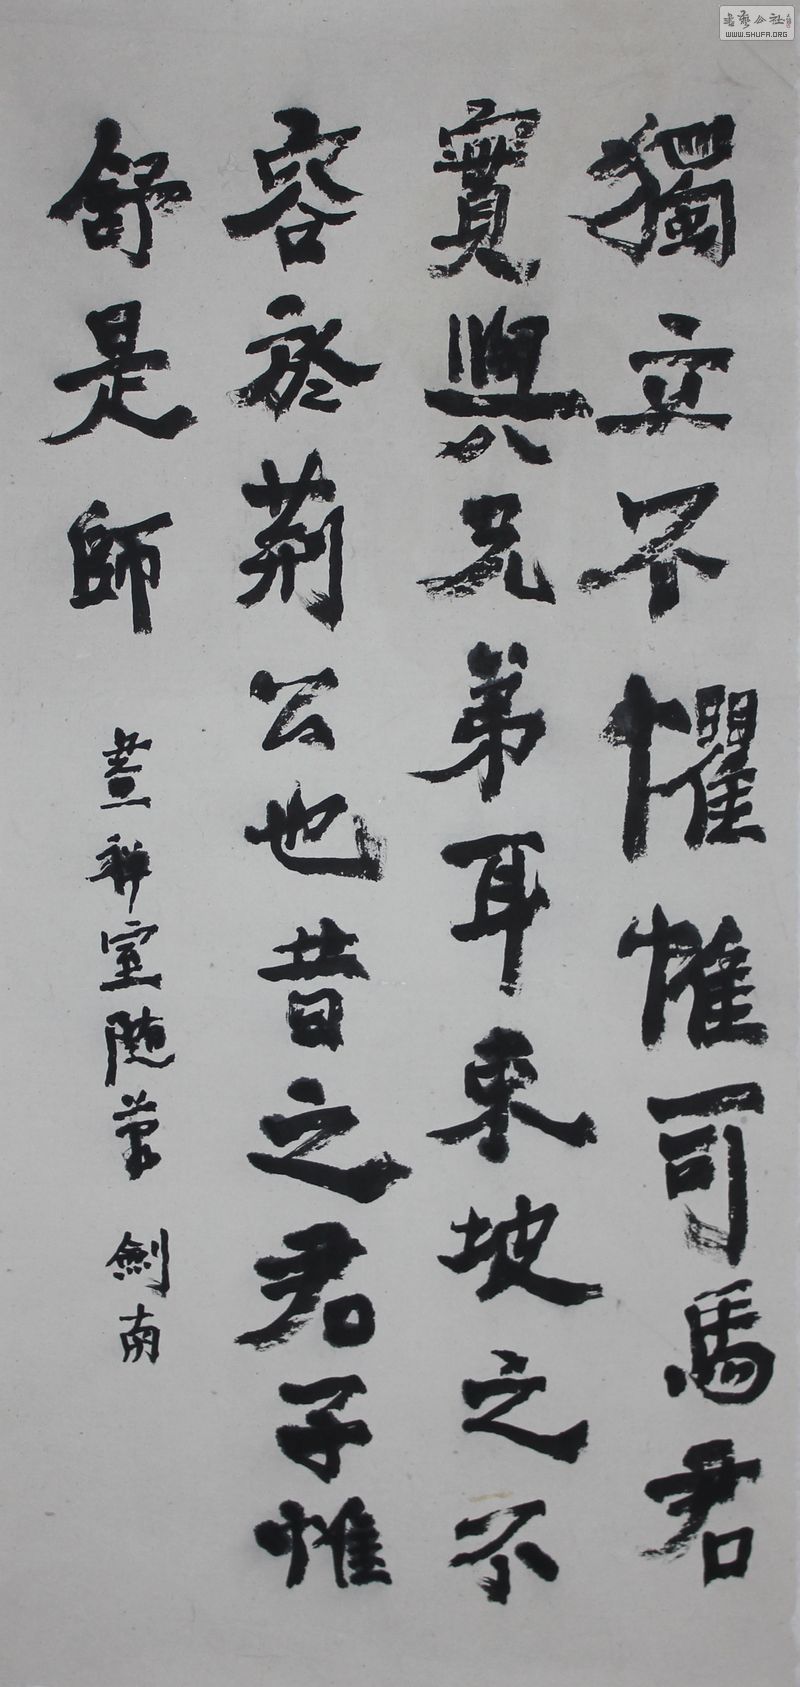 獨立不懼惟司馬君
實與兄弟耳東坡之不
容於荊公也昔之君子惟
舒是師
畫禪室隨筆 劍南
書藝公社
WWW.SHUFA.ORG